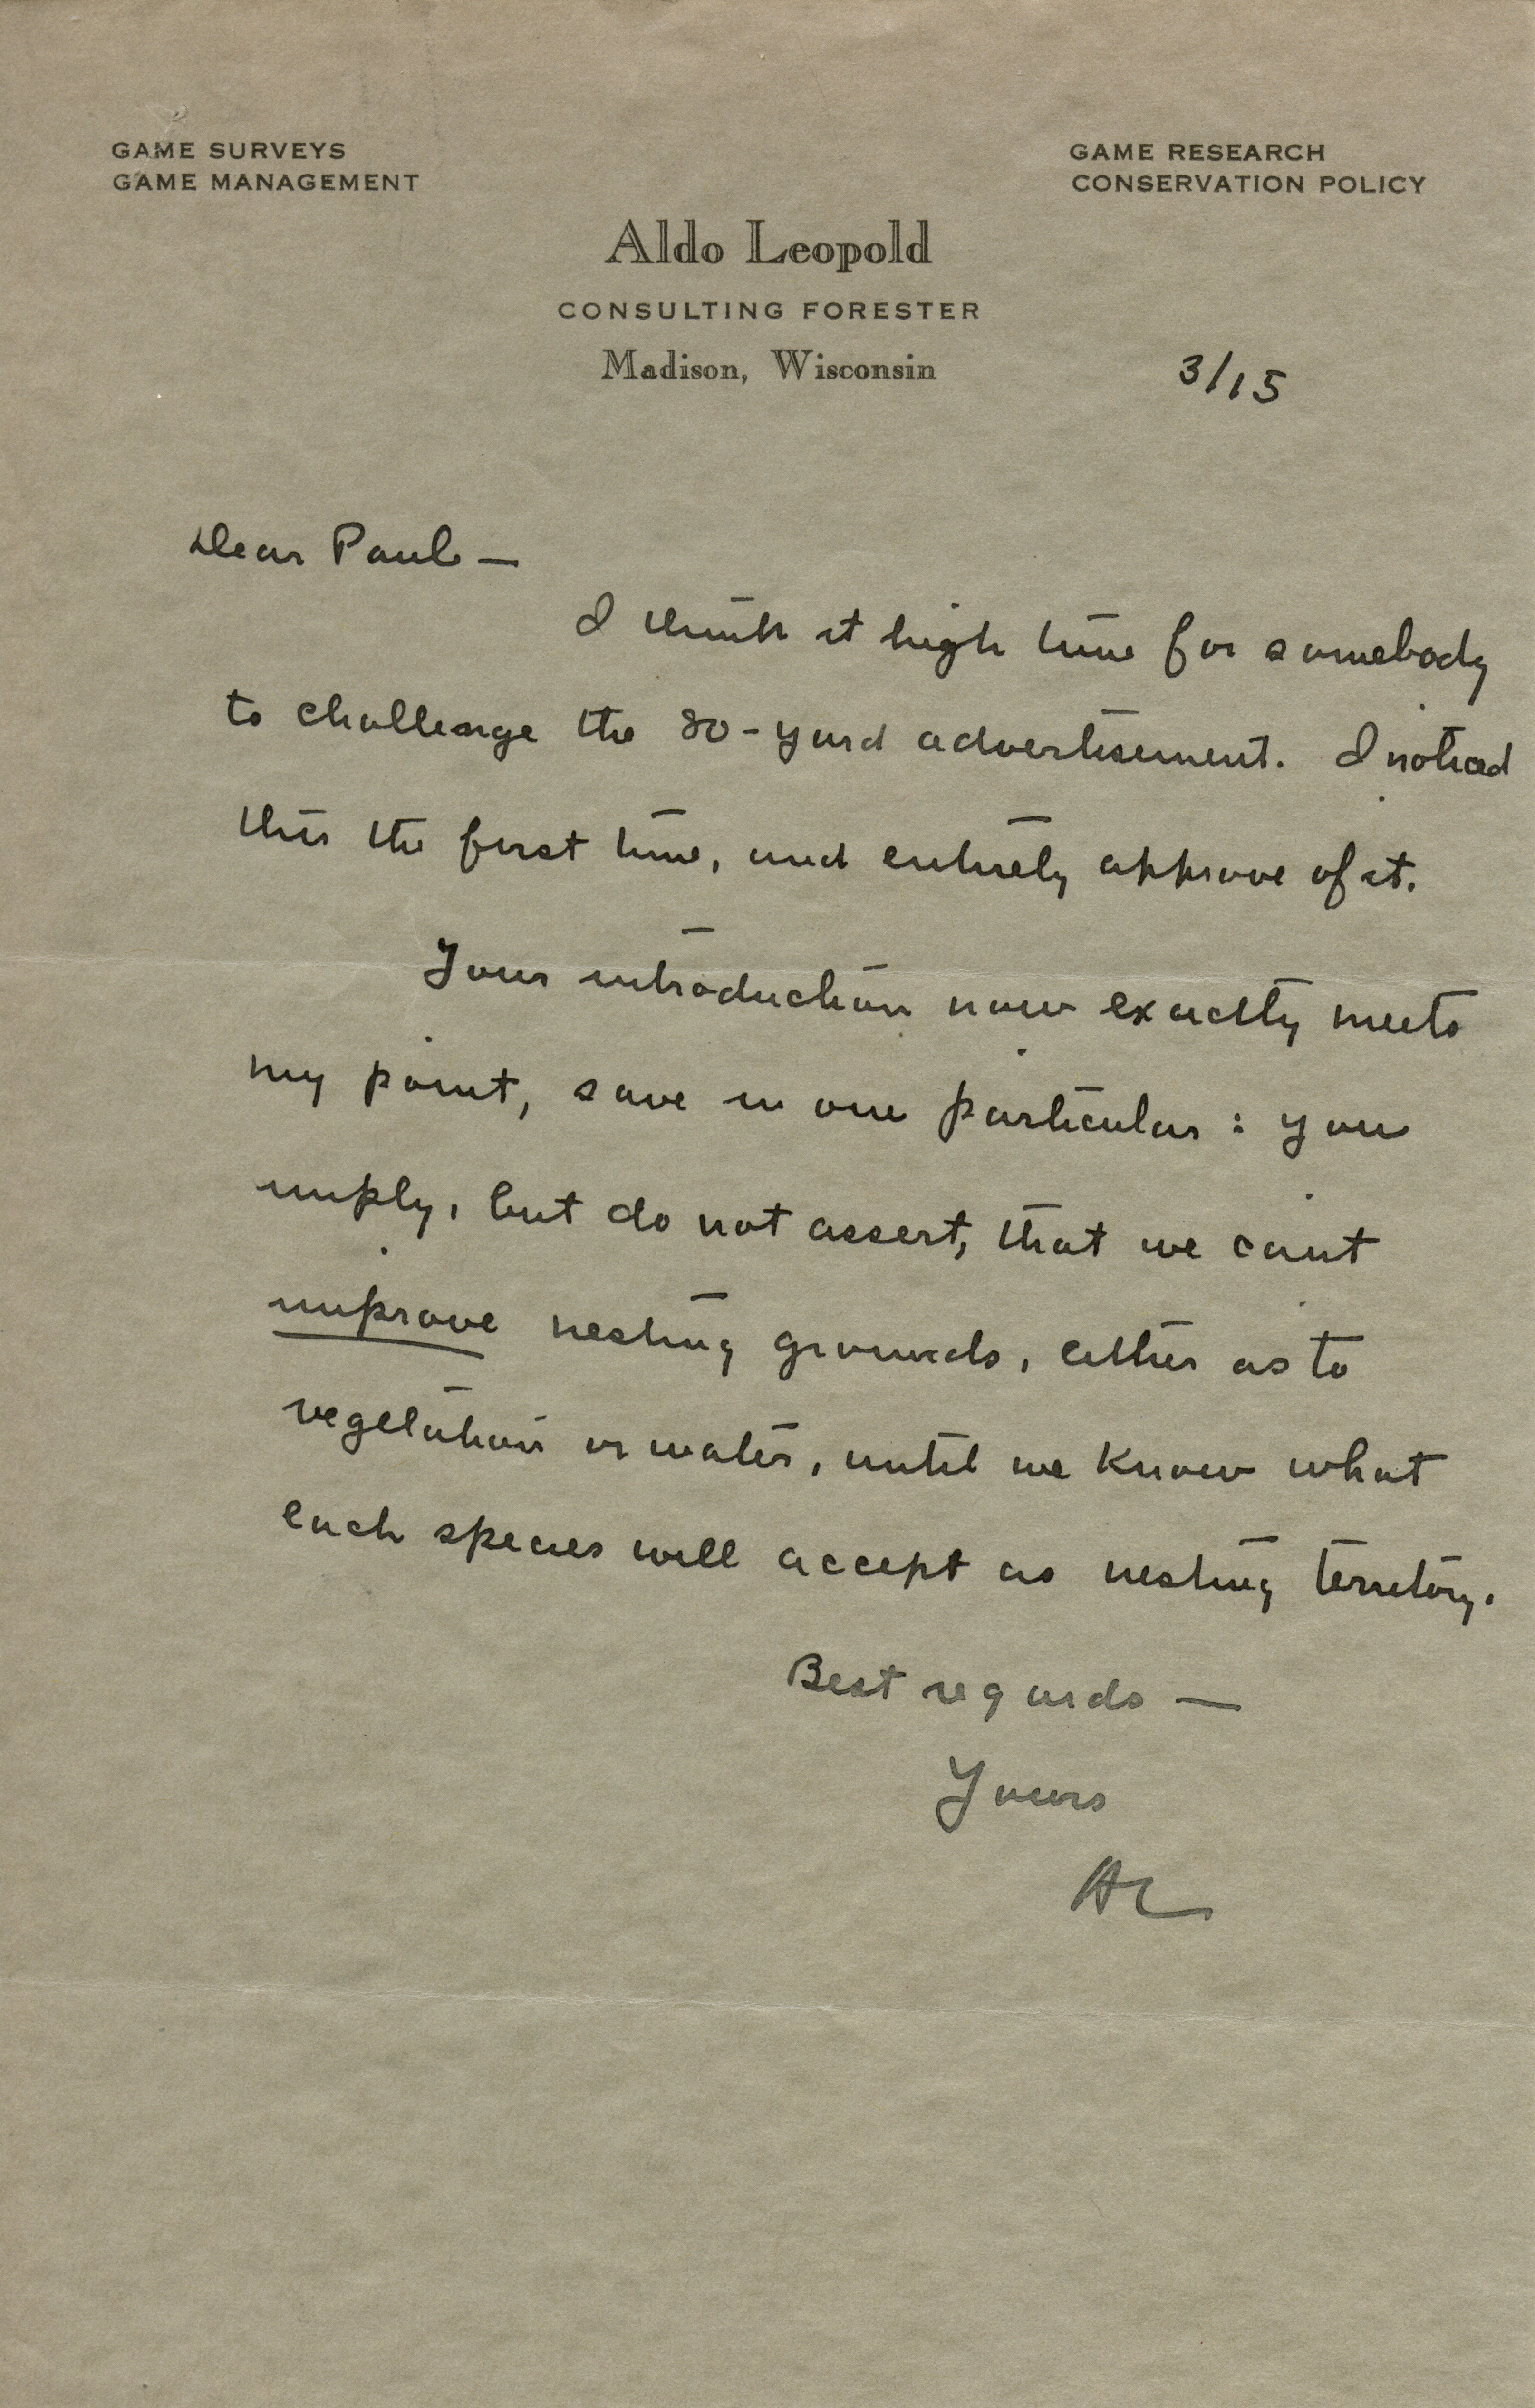 GAME SURVEYS
GAME MANAGEMENT
GAME RESEARCH
CONSERVATION POLICY
Aldo Leopold
CONSULTING FORESTER
Madison, Wisconsin
3/15
Dear Paul —
I think it high time for somebody
to challenge the 80-yard advertisement. I noticed
this the first time, and entirely approve of it.
Your introduction now exactly meets
my point, save in one particular: you
imply, but do not assert, that we cant
improve nesting grounds, either as to
vegetation or water, until we know what
each species will accept as nesting territory.
Best regards —
Yours
AL